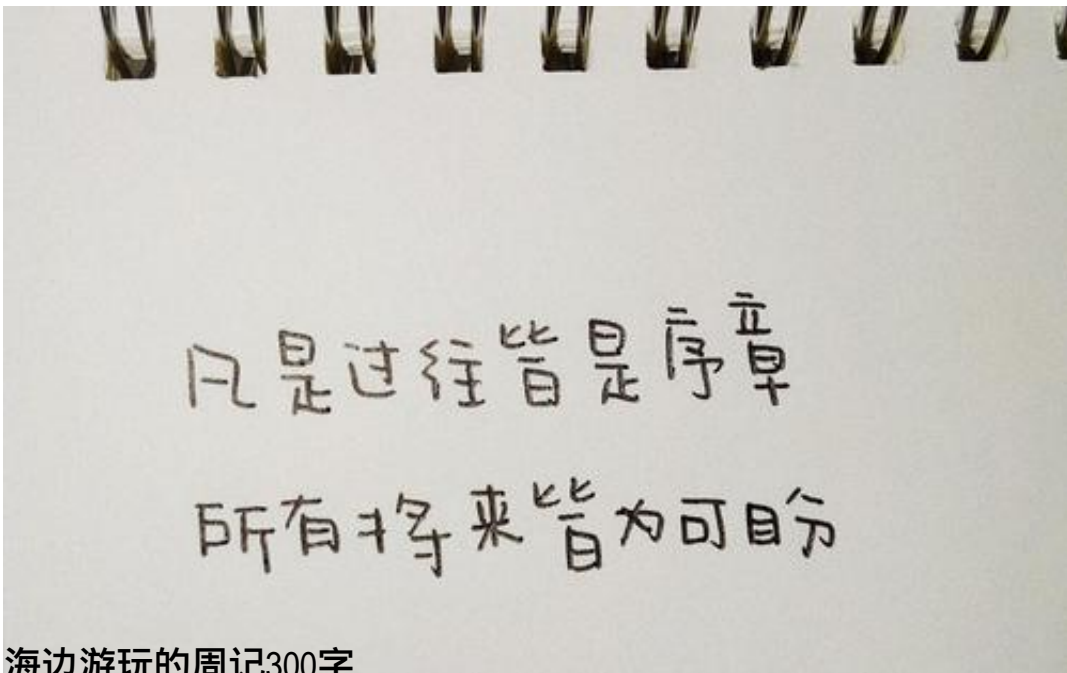 凡是过往皆是序章
所有将来皆为可盼
海边游玩的周记300字